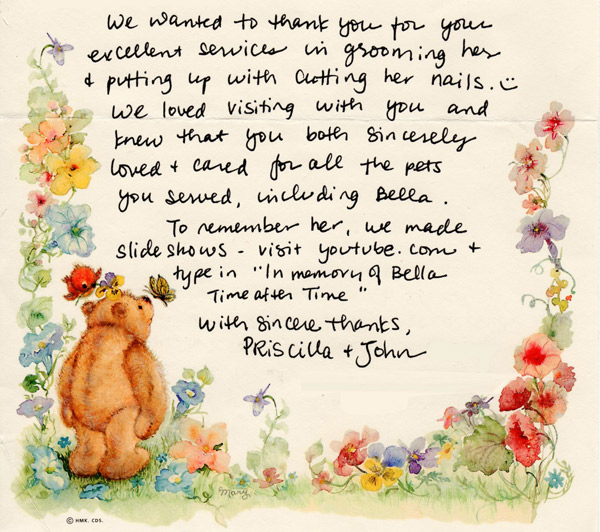 We wanted to thank you for your
excellent services in grooming her
+ putting up with cutting her nails.
We loved visiting with you and
knew that you both sincerely
loved + cared for all the pets
you served, including Bella.
To remember her, we made
slideshows - visit youtube.com +
type in "In memory of Bella
Time after Time"
With sincere thanks,
Priscilla + John
Mary
© HMK. CDS.